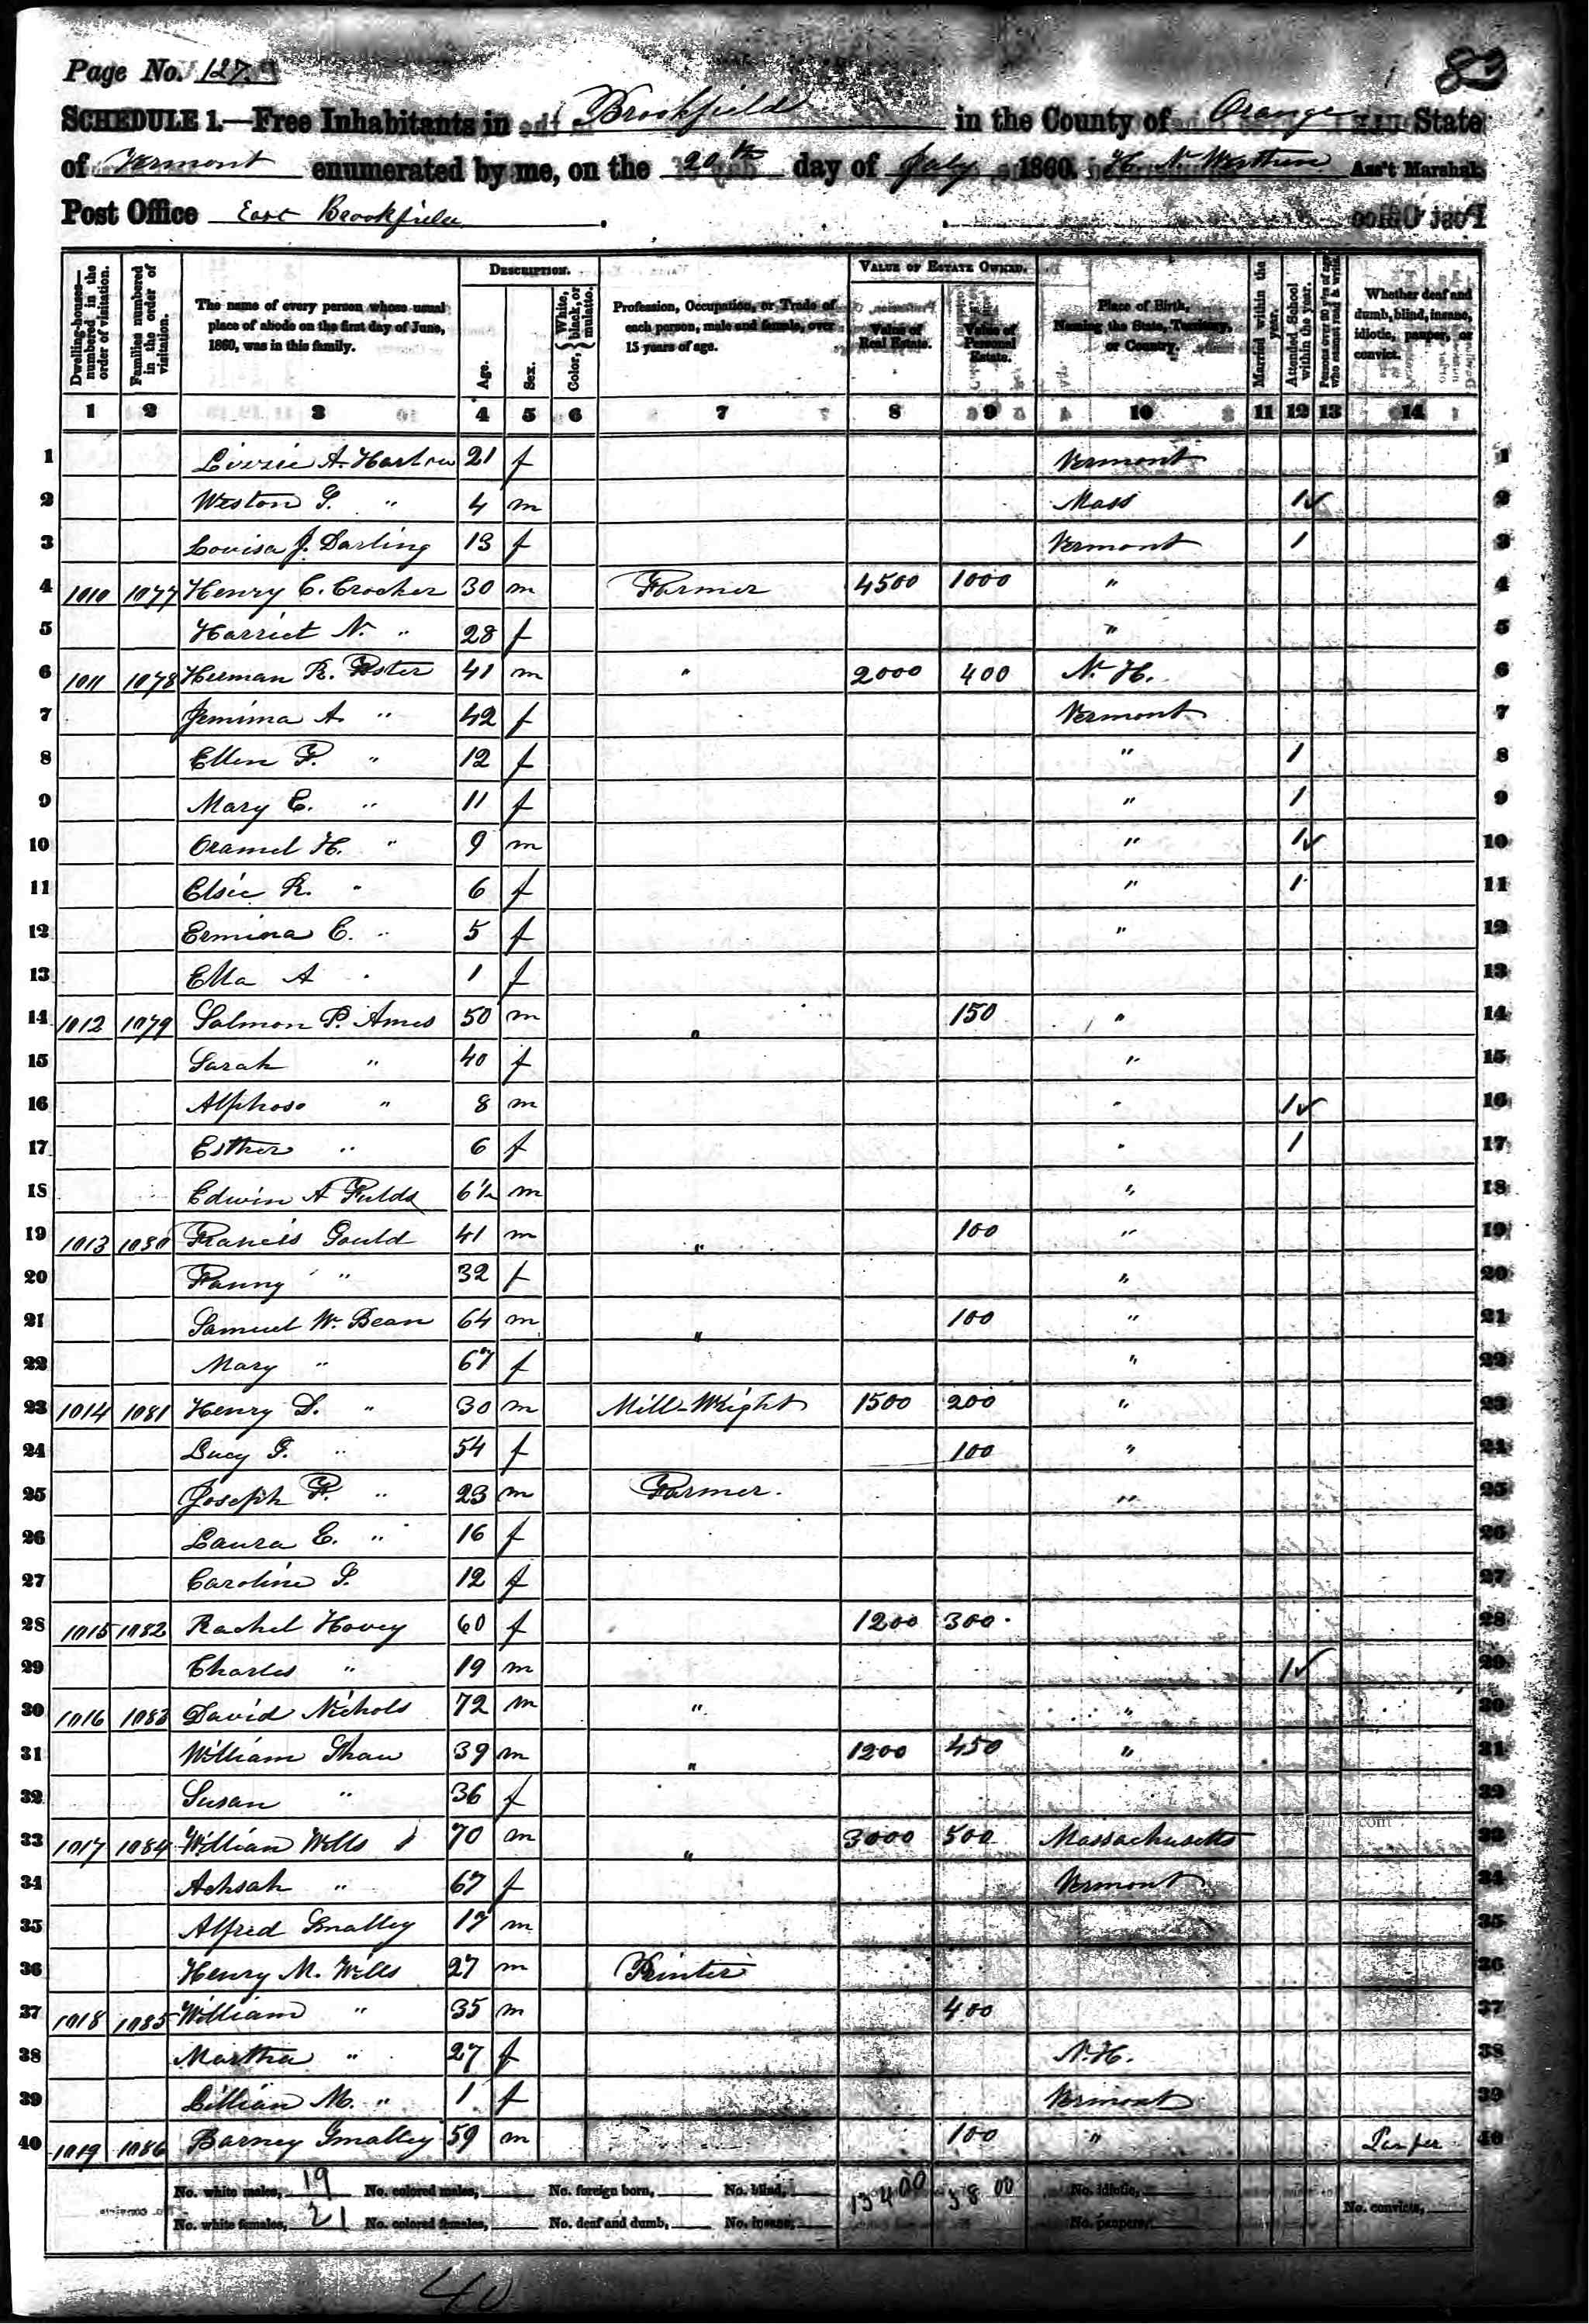 Page No. 127
83
SCHEDULE 1.—Free Inhabitants in Brookfield in the County of Orange State
of Vermont enumerated by me, on the 20th day of July 1860. H. N. Ass't Marshal.
Post Office East Brookfield
Dwelling-houses—numbered in the order of visitation.
Families numbered in the order of visitation.
The name of every person whose usual place of abode on the first day of June, 1860, was in this family.
DESCRIPTION.
Age.
Sex.
Color, { White, black, or mulatto. }
Profession, Occupation, or Trade of each person, male and female, over 15 years of age.
VALUE OF ESTATE OWNED.
Value of Real Estate.
Value of Personal Estate.
Place of Birth, Naming the State, Territory, or Country.
Married within the year.
Attended School within the year.
Persons over 20 y'rs of age who cannot read & write.
Whether deaf and dumb, blind, insane, idiotic, pauper, or convict.
1 2 3 4 5 6 7 8 9 10 11 12 13 14
1 Lizzie A. Harlow 21 f Vermont 1
2 Weston G. " 4 m Mass 1 ✓ 2
3 Louisa J. Darling 13 f Vermont 1 3
4 1010 1077 Henry C. Crocker 30 m Farmer 4500 1000 " 4
5 Harriet N. " 28 f " 5
6 1011 1078 Heman R. 41 m " 2000 400 N. H. 6
7 Jemima A. " 42 f Vermont 7
8 Ellen F. " 12 f " 1 8
9 Mary E. " 11 f " 1 9
10 Oramel H. " 9 m " 1 ✓ 10
11 Elsie R. " 6 f " 1 11
12 Ermina E. " 5 f " 12
13 Ella A " 1 f 13
14 1012 1079 Salmon P. Ames 50 m " 150 " 14
15 Sarah " 40 f " 15
16 Alphoso " 8 m " 1 ✓ 16
17 Esther " 6 f " 1 17
18 Edwin A m " 18
19 1013 1080 Francis Gould 41 m " 100 " 19
20 Fanny " 32 f " 20
21 Samuel W. Bean 64 m " 100 " 21
22 Mary " 67 f " 22
23 1014 1081 Henry D. " 30 m Mill-Wright 1500 200 " 23
24 Lucy G. " 54 f 100 " 24
25 Joseph F. " 23 m Farmer. " 25
26 Laura E. " 16 f 26
27 Caroline S. 12 f 27
28 1015 1082 Rachel Hovey 60 f 1200 300 28
29 Charles " 19 m 1 ✓ 29
30 1016 1083 David Nichols 72 m " " 30
31 William Shaw 39 m " 1200 450 " 31
32 Susan " 36 f 32
33 1017 1084 William Wills 70 m " 3000 500 Massachusetts 33
34 Achsah " 67 f Vermont 34
35 Alfred Smalley 17 m 35
36 Henry M. Wills 27 m Printer 36
37 1018 1085 William " 35 m 400 37
38 Martha " 27 f N. H. 38
39 Lillian M. " 1 f Vermont 39
40 1019 1086 Barney Smalley 59 m 100 " Pauper 40
No. white males, 19 No. colored males, No. foreign born, No. blind, 13400 3800 No. idiotic,
No. white females, 21 No. colored females, No. deaf and dumb, No. insane, No. paupers, No. convicts,
40